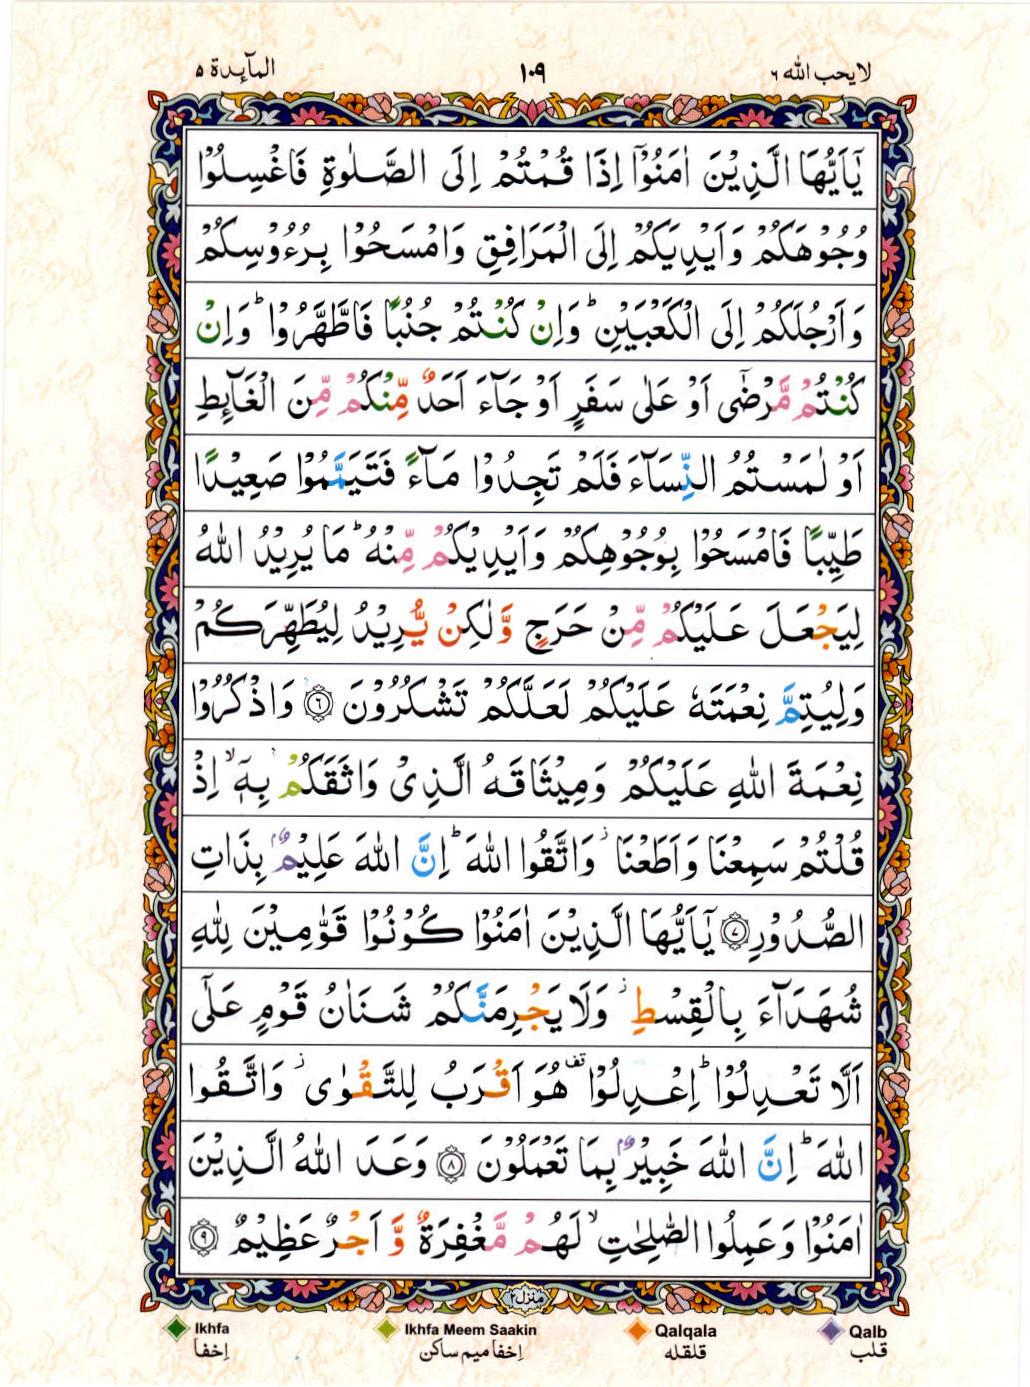 المآئدة ٥ ١٠٩ لا يحب الله ٦
يٰۤاَيُّهَا الَّذِيْنَ اٰمَنُوْۤا اِذَا قُمْتُمْ اِلَى الصَّلٰوةِ فَاغْسِلُوْا
وُجُوْهَكُمْ وَاَيْدِيَكُمْ اِلَى الْمَرَافِقِ وَامْسَحُوْا بِرُءُوْسِكُمْ
وَاَرْجُلَكُمْ اِلَى الْكَعْبَيْنِ ؕ وَاِنْ كُنْتُمْ جُنُبًا فَاطَّهَّرُوْا ؕ وَاِنْ
كُنْتُمْ مَّرْضٰۤى اَوْ عَلٰى سَفَرٍ اَوْ جَآءَ اَحَدٌ مِّنْكُمْ مِّنَ الْغَآئِطِ
اَوْ لٰمَسْتُمُ النِّسَآءَ فَلَمْ تَجِدُوْا مَآءً فَتَيَمَّمُوْا صَعِيْدًا
طَيِّبًا فَامْسَحُوْا بِوُجُوْهِكُمْ وَاَيْدِيْكُمْ مِّنْهُ ؕ مَا يُرِيْدُ اللّٰهُ
لِيَجْعَلَ عَلَيْكُمْ مِّنْ حَرَجٍ وَّلٰكِنْ يُّرِيْدُ لِيُطَهِّرَكُمْ
وَلِيُتِمَّ نِعْمَتَهٗ عَلَيْكُمْ لَعَلَّكُمْ تَشْكُرُوْنَ ۝٦ وَاذْكُرُوْا
نِعْمَةَ اللّٰهِ عَلَيْكُمْ وَمِيْثَاقَهُ الَّذِىْ وَاثَقَكُمْ بِهٖۤ ۙ اِذْ
قُلْتُمْ سَمِعْنَا وَاَطَعْنَا ۫ وَاتَّقُوا اللّٰهَ ؕ اِنَّ اللّٰهَ عَلِيْمٌۢ بِذَاتِ
الصُّدُوْرِ ۝٧ يٰۤاَيُّهَا الَّذِيْنَ اٰمَنُوْا كُوْنُوْا قَوّٰمِيْنَ لِلّٰهِ
شُهَدَآءَ بِالْقِسْطِ ۫ وَلَا يَجْرِمَنَّكُمْ شَنَاٰنُ قَوْمٍ عَلٰۤى
اَلَّا تَعْدِلُوْا ؕ اِعْدِلُوْا قف هُوَ اَقْرَبُ لِلتَّقْوٰى ۫ وَاتَّقُوا
اللّٰهَ ؕ اِنَّ اللّٰهَ خَبِيْرٌۢ بِمَا تَعْمَلُوْنَ ۝٨ وَعَدَ اللّٰهُ الَّذِيْنَ
اٰمَنُوْا وَعَمِلُوا الصّٰلِحٰتِ ۙ لَهُمْ مَّغْفِرَةٌ وَّاَجْرٌ عَظِيْمٌ ۝٩
منزل ٢
Ikhfa Ikhfa Meem Saakin Qalqala Qalb
اِخفا اِخفا ميم ساكن قلقله قلب